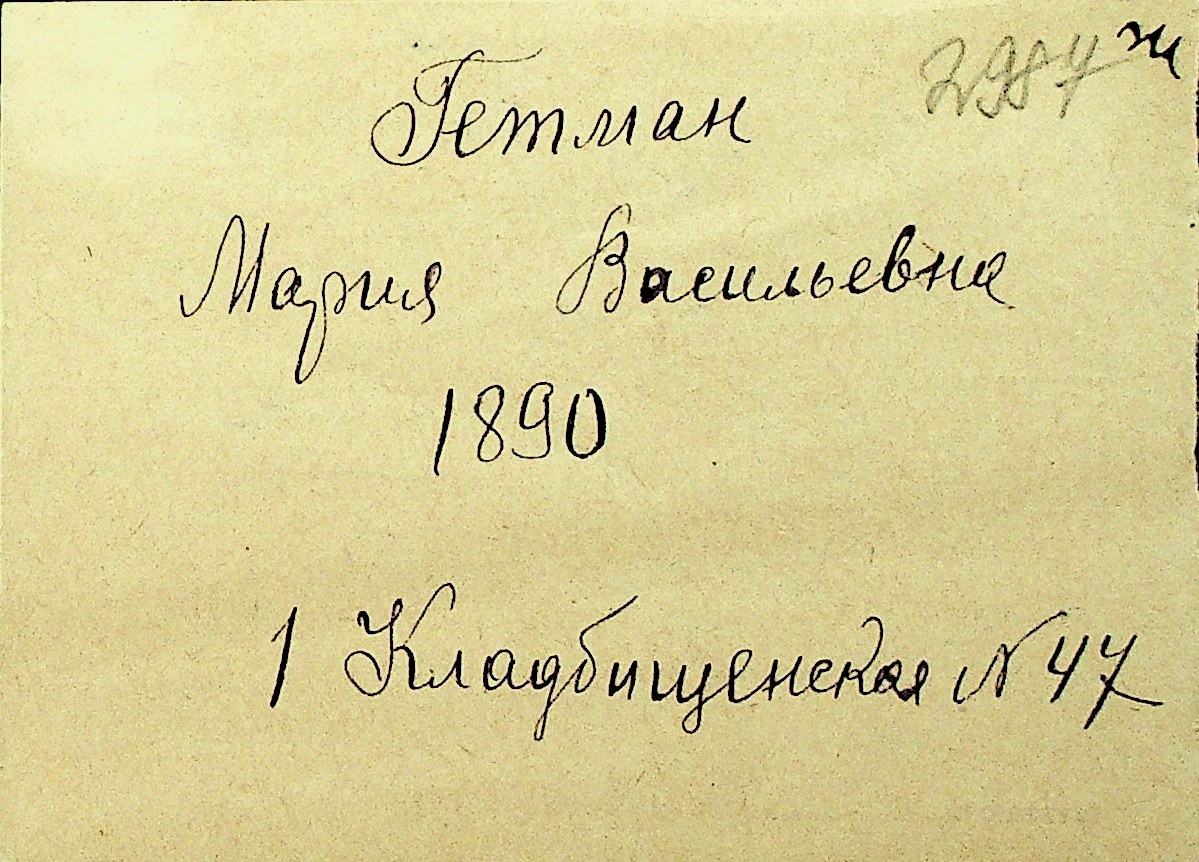 2987 ж
Гетман
Мария Васильевна
1890
1 Кладбищенская N 47